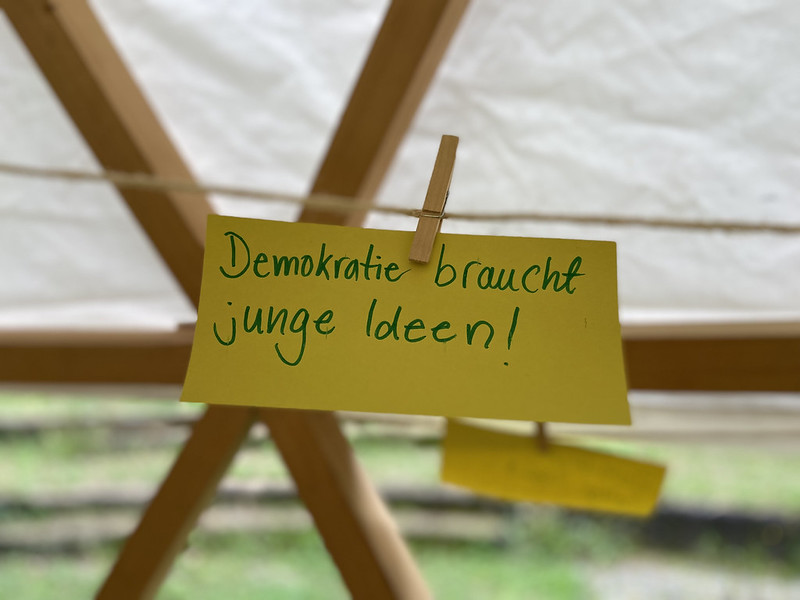 Demokratie braucht
junge Ideen!